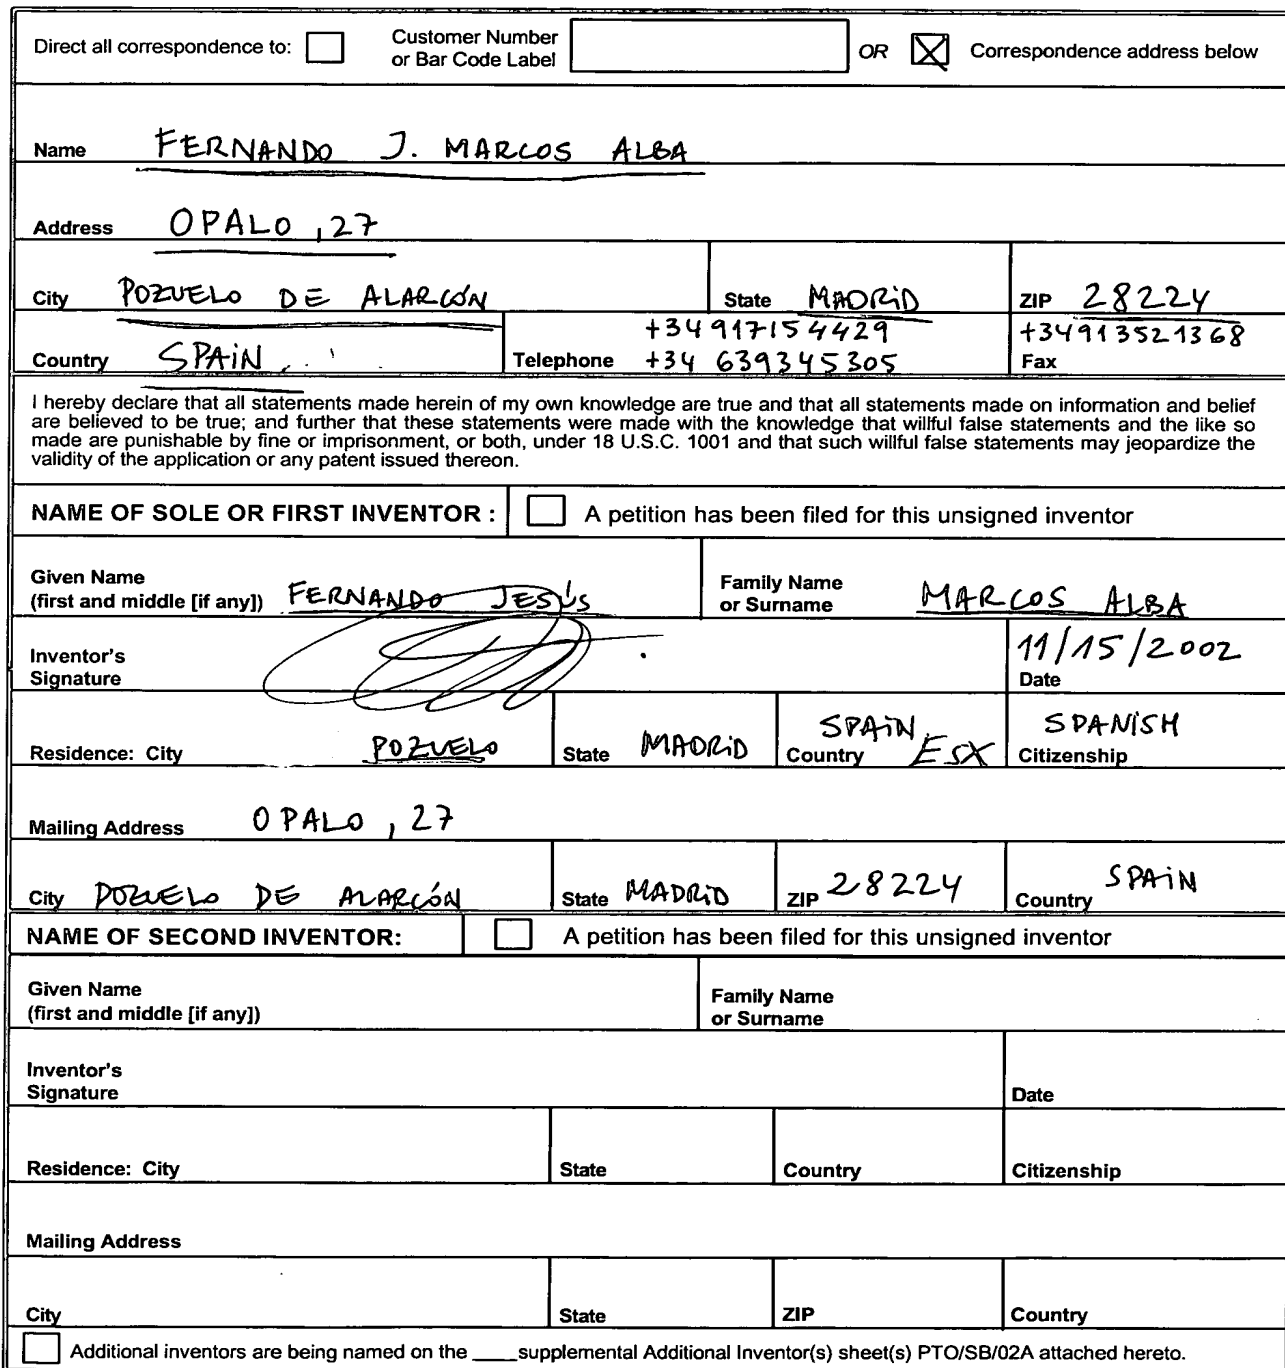 Direct all correspondence to: Customer Number or Bar Code Label OR Correspondence address below
Name FERNANDO J. MARCOS ALBA
Address OPALO, 27
City POZUELO DE ALARCÓN State MADRiD ZIP 28224
Country SPAiN Telephone +34 917154429 +34 639345305 +34913521368 Fax
I hereby declare that all statements made herein of my own knowledge are true and that all statements made on information and belief
are believed to be true; and further that these statements were made with the knowledge that willful false statements and the like so
made are punishable by fine or imprisonment, or both, under 18 U.S.C. 1001 and that such willful false statements may jeopardize the
validity of the application or any patent issued thereon.
NAME OF SOLE OR FIRST INVENTOR : A petition has been filed for this unsigned inventor
Given Name (first and middle [if any]) FERNANDO JESÚS Family Name or Surname MARCOS ALBA
Inventor's Signature 11/15/2002 Date
Residence: City POZUELO State MADRiD Country SPAiN ESX Citizenship SPANiSH
Mailing Address OPALO, 27
City POZUELO DE ALARCÓN State MADRiD ZIP 28224 Country SPAiN
NAME OF SECOND INVENTOR: A petition has been filed for this unsigned inventor
Given Name (first and middle [if any]) Family Name or Surname
Inventor's Signature Date
Residence: City State Country Citizenship
Mailing Address
City State ZIP Country
Additional inventors are being named on the ____supplemental Additional Inventor(s) sheet(s) PTO/SB/02A attached hereto.